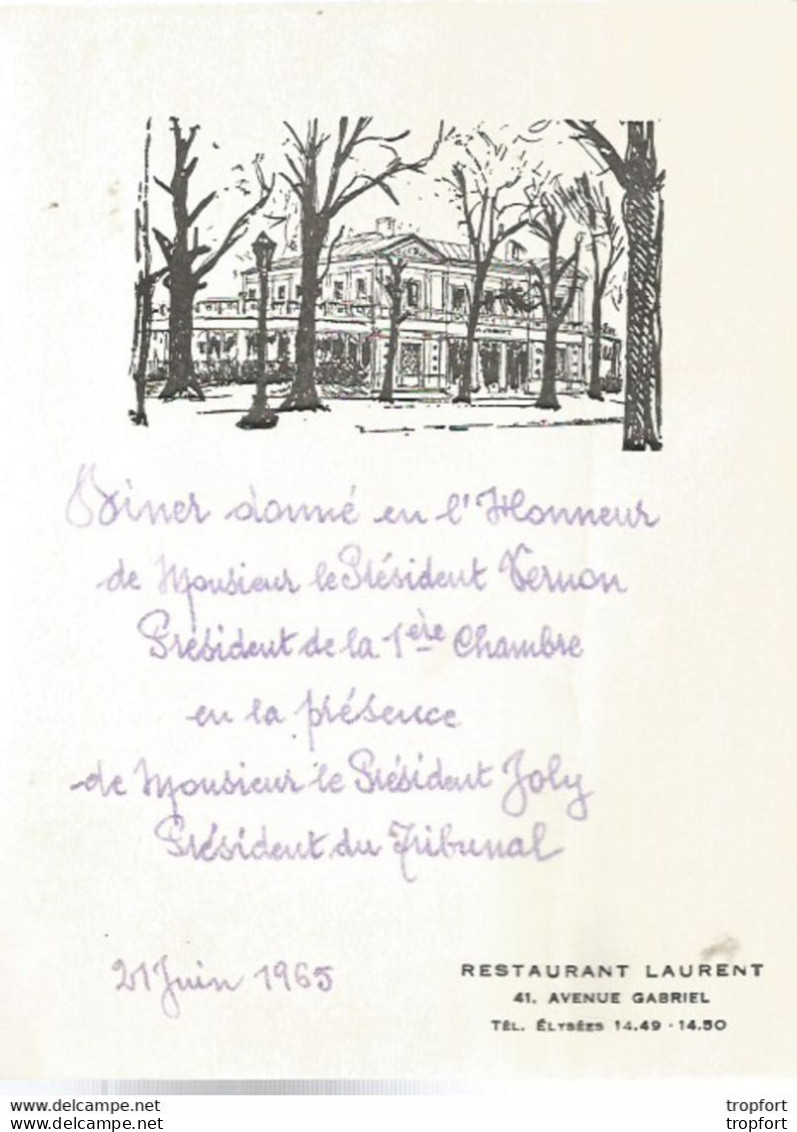 Dîner donné en l'Honneur
de Monsieur le Président Vernon
Président de la 1ère Chambre
en la présence
de Monsieur le Président Joly
Président du Tribunal
21 Juin 1965
RESTAURANT LAURENT
41, AVENUE GABRIEL
TÉL. ÉLYSÉES 14.49 - 14.50
www.delcampe.net
tropfort
www.delcampe.net
tropfort